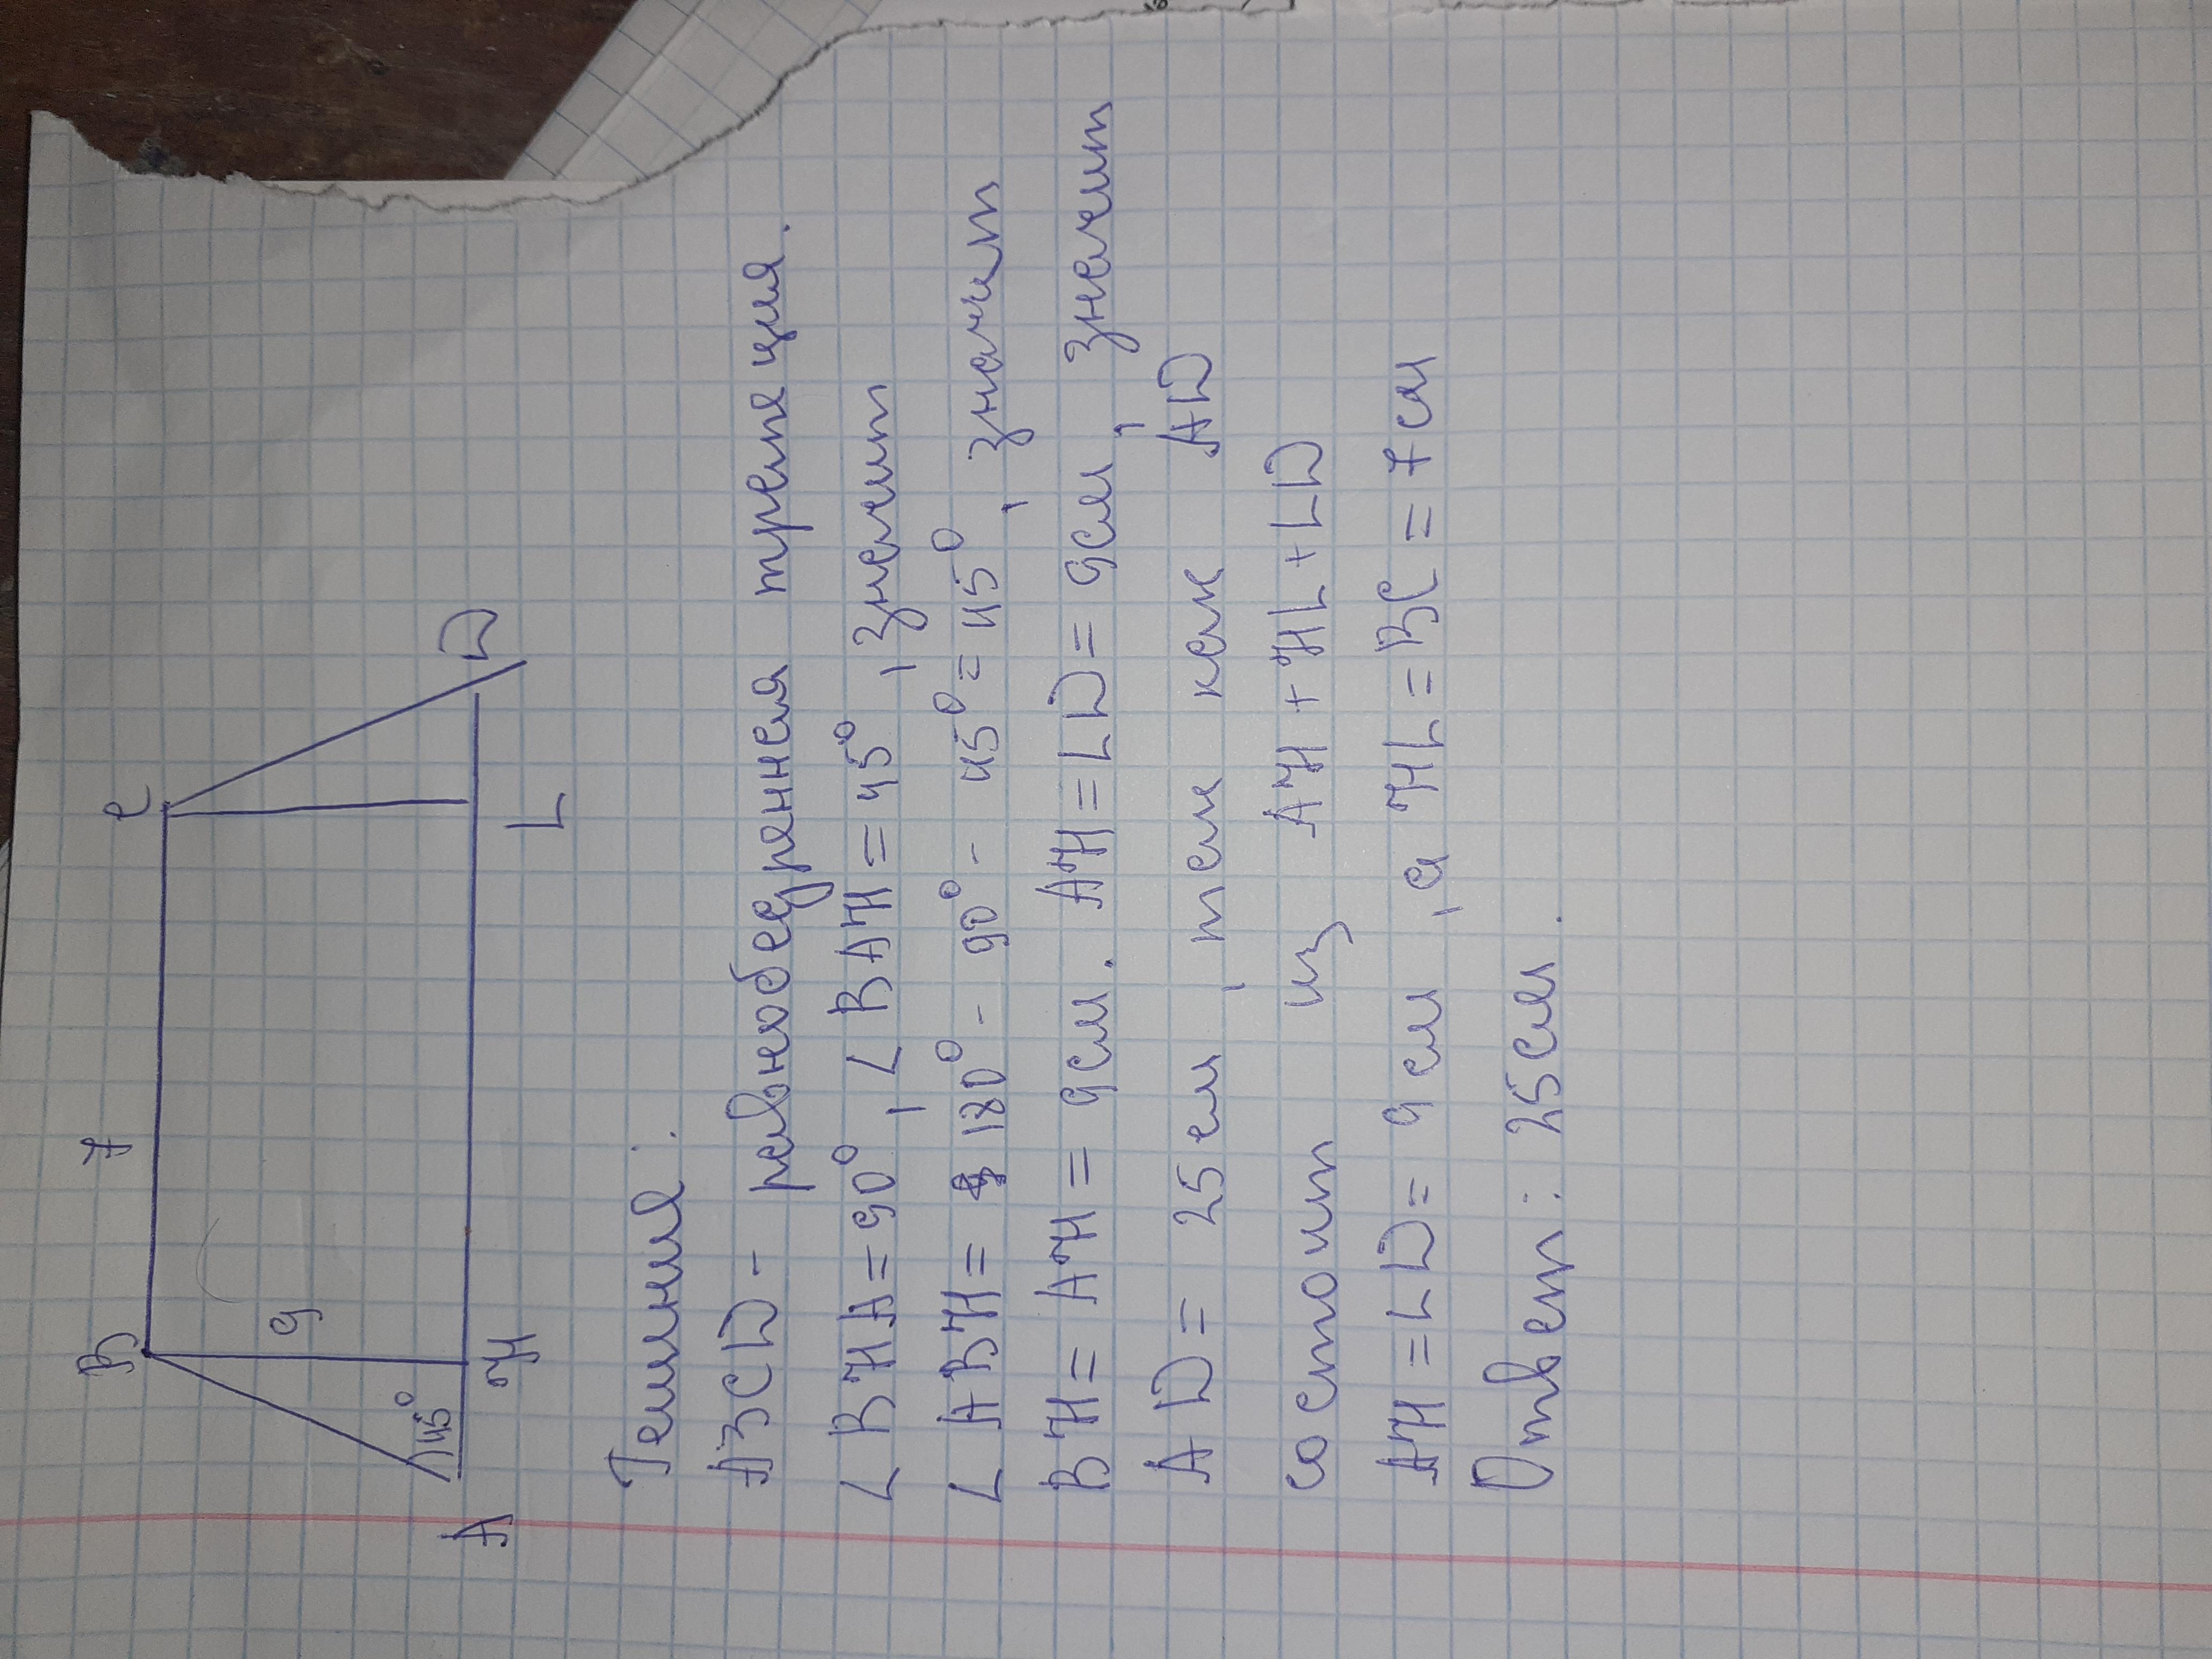 B 7 C
9
45°
A H L D
Решение:
ABCD - равнобедренная трапеция.
∠ BHA = 90°, ∠ BAH = 45°, значит
∠ ABH = 180° - 90° - 45° = 45°, значит
BH = AH = 9см. AH = LD = 9см, значит
AD = 25см, так как AD
состоит из AH + HL + LD
AH = LD = 9 см, а HL = BC = 7см
Ответ: 25см.